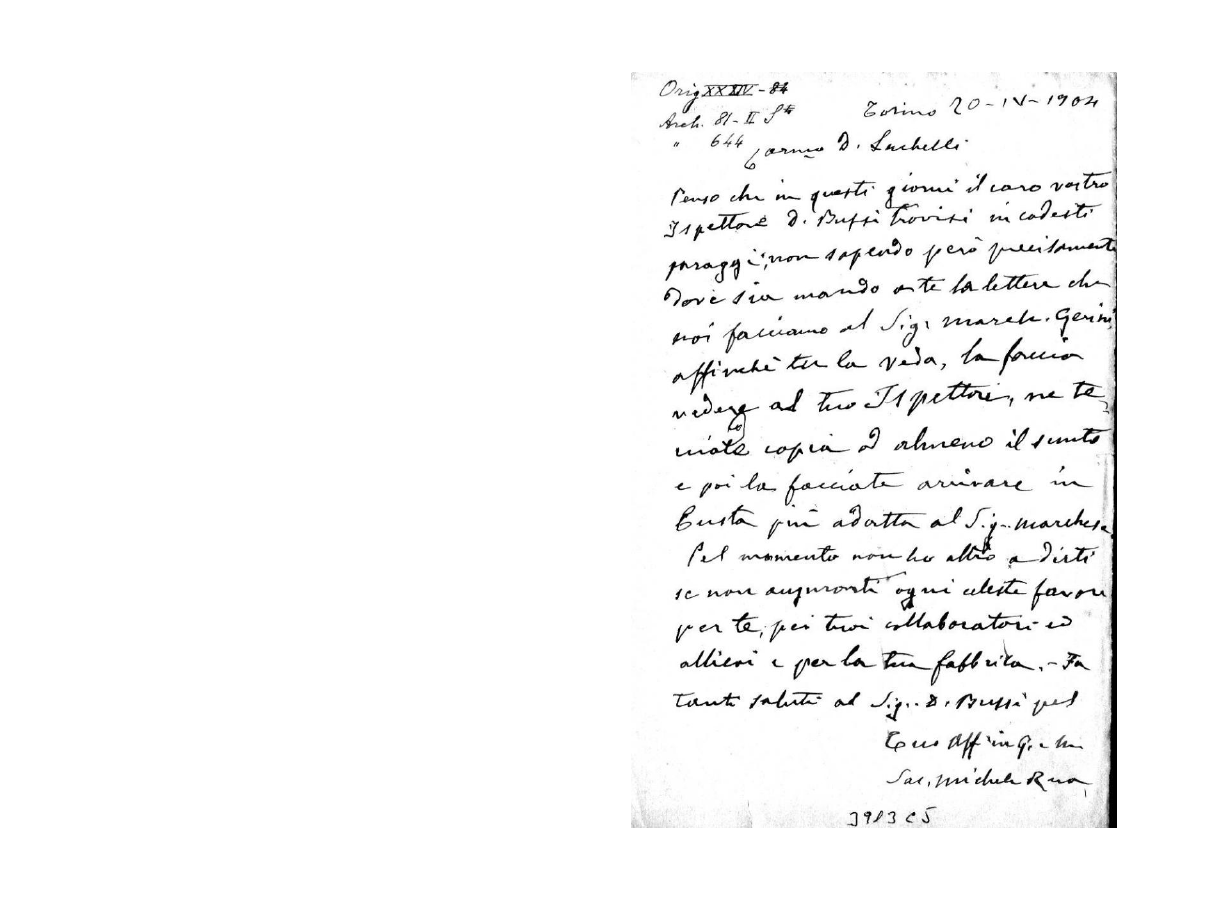 Orig XXXIV - 84
Arch. 81 - II S.te
" 644
Torino 20-IV-1904
Carmo D. Luchelli
Penso che in questi giorni il caro vostro
Ispettore D. Bussi trovisi in codesti
paraggi; non sapendo però precisamente
dove sia mando a te la lettera che
noi facciamo al Sig. March. Gerini,
affinché tu la veda, la faccia
vedere al tuo Ispettore, ne te-
niate copia od almeno il sunto
e poi la facciate arrivare in
busta più adatta al Sig. Marchese
Pel momento non ho altro a dirti
se non augurarti ogni celeste favore
per te, pei tuoi collaboratori ed
allievi e per la tua fabbrica. - Fa
tanti saluti al Sig. D. Bussi pel
Tuo Aff in G. e M.
Sac. Michele Rua
3983 C5